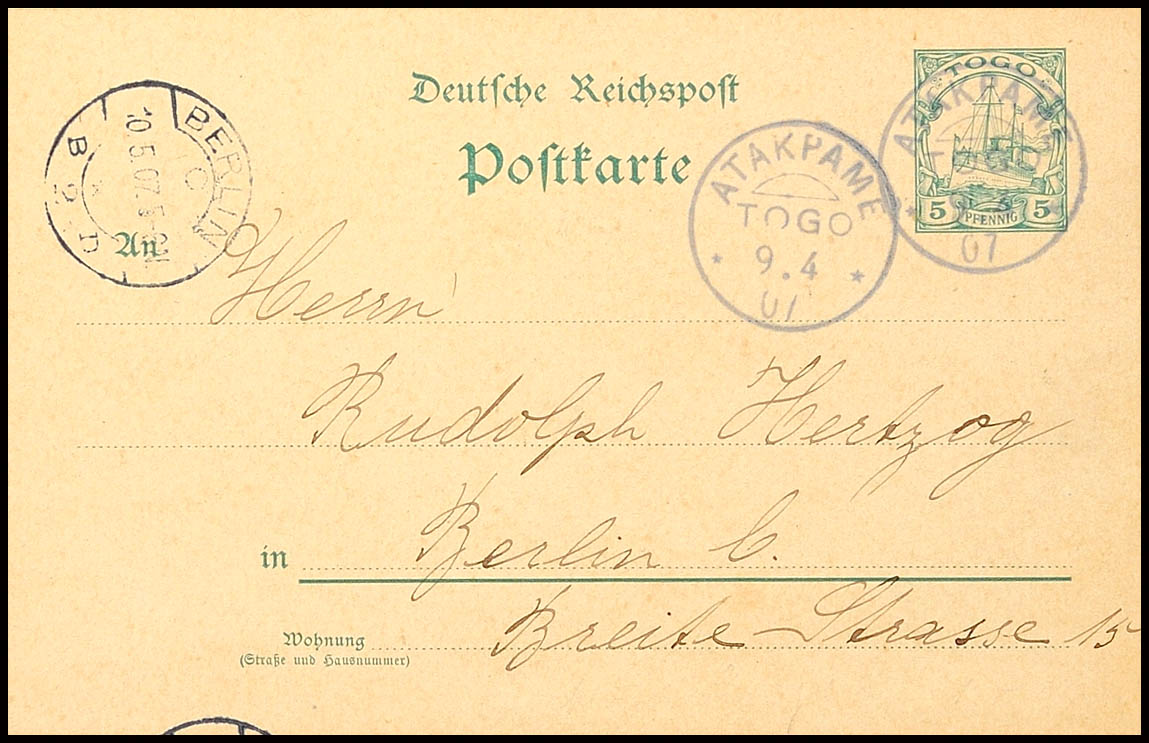 Deutsche Reichspost
Postkarte
TOGO
5 PFENNIG 5
ATAKPAME
TOGO
07
ATAKPAME
TOGO
9.4
07
BERLIN
C
10.5.07.
B 2 D
An
Herrn
Rudolph Hertzog
in Berlin C.
Breite Strasse 15
Wohnung
(Straße und Hausnummer)